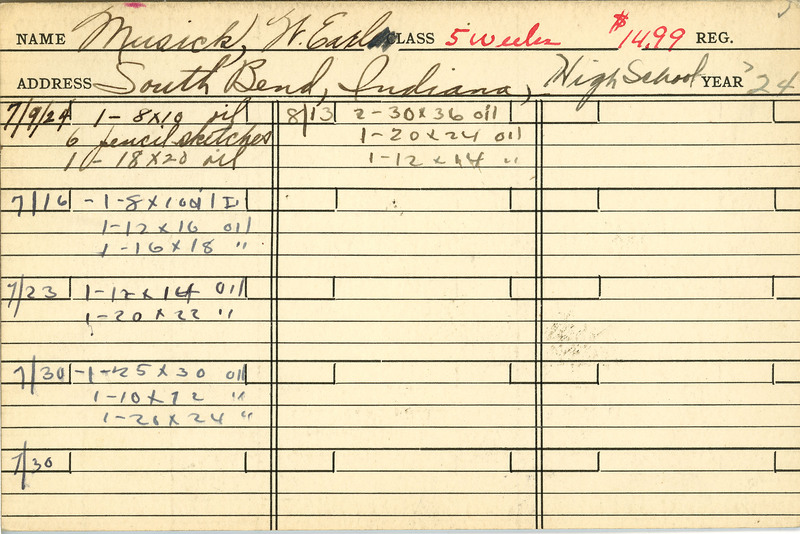 NAME Musick, W. Earl CLASS 5 weeks $14.99 REG.
ADDRESS South Bend, Indiana, High School YEAR '24
7/9/24 1 - 8x10 oil
6 pencil sketches
1 - 18x20 oil
7/16 - 1 - 8x10 oil
1 - 12x16 oil
1 - 16x18 "
7/23 1 - 12x14 oil
1 - 20x22 "
7/30 - 1 - 25x30 oil
1 - 10x12 "
1 - 20x24 "
7/30
8/13 2 - 30x36 oil
1 - 20x24 oil
1 - 12x14 "